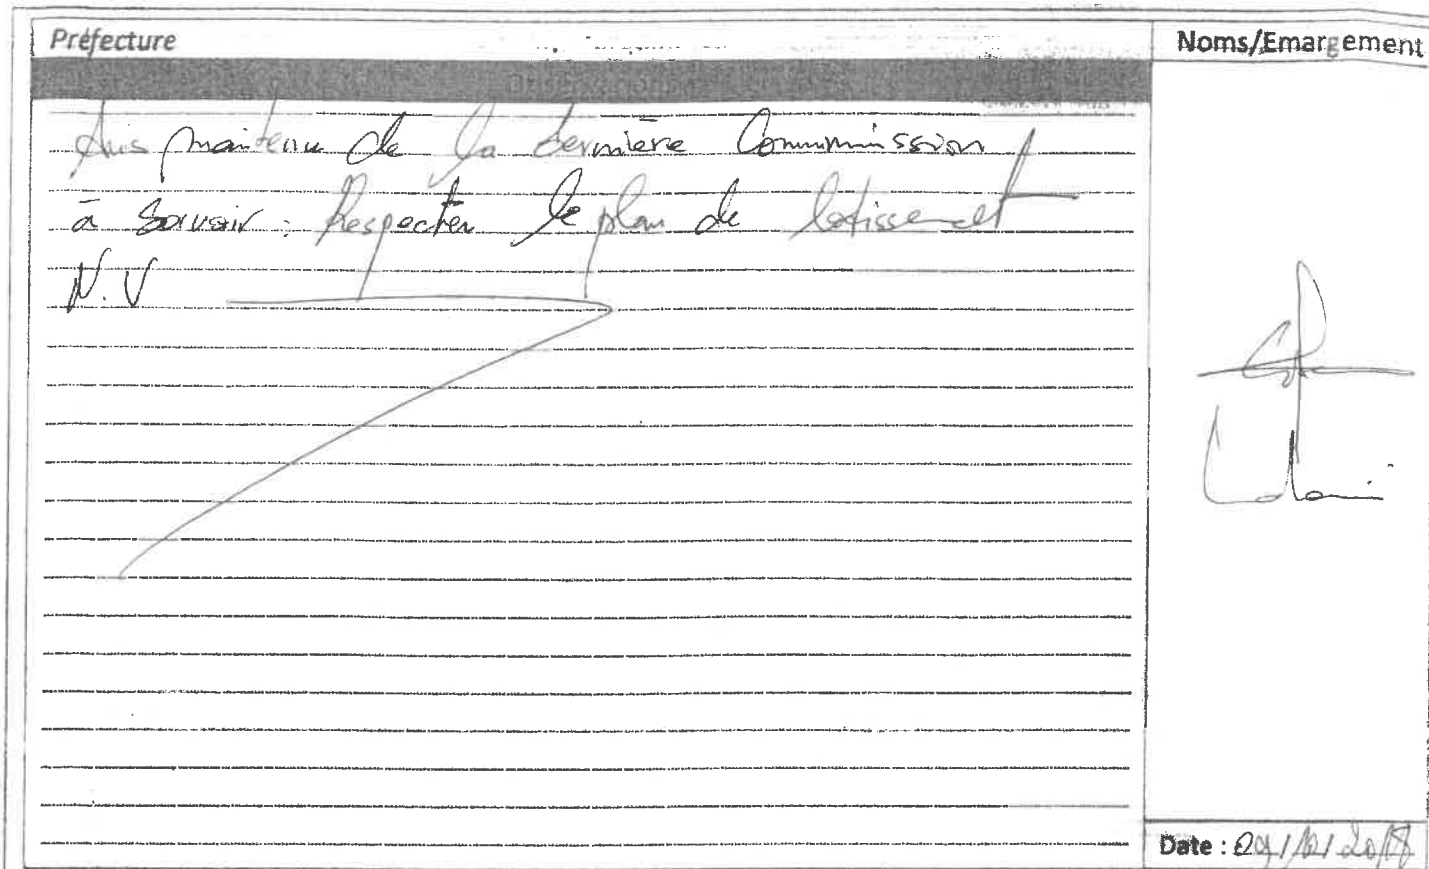 Préfecture
Noms/Emargement
Avis maintenu de la dernière Commmission
à savoir : Respecter le plan de lotissement
N.V
Date :